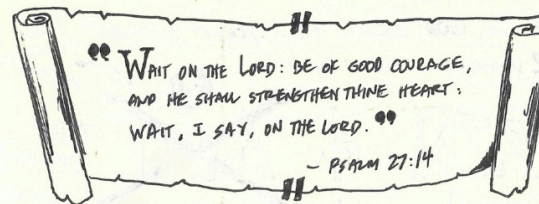 “WAIT ON THE LORD: BE OF GOOD COURAGE,
AND HE SHALL STRENGTHEN THINE HEART:
WAIT, I SAY, ON THE LORD.”
– PSALM 27:14